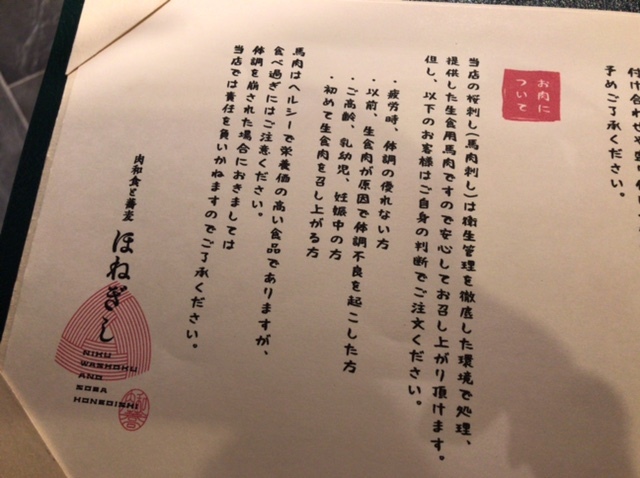 付け合わせや
予めご了承ください。
お肉に
ついて
当店の桜刺し(馬肉刺し)は衛生管理を徹底した環境で処理、
提供した生食用馬肉ですので安心してお召し上がり頂けます。
但し、以下のお客様はご自身の判断でご注文ください。
・疲労時、体調の優れない方
・以前、生食肉が原因で体調不良を起こした方
・ご高齢、乳幼児、妊娠中の方
・初めて生食肉を召し上がる方
馬肉はヘルシーで栄養価の高い食品でありますが、
食べ過ぎにはご注意ください。
体調を崩された場合におきましては
当店では責任を負いかねますのでご了承ください。
肉和食と蕎麦
ほねぎし
NIKU
WASHOKU
AND
SOBA
HONEGISHI